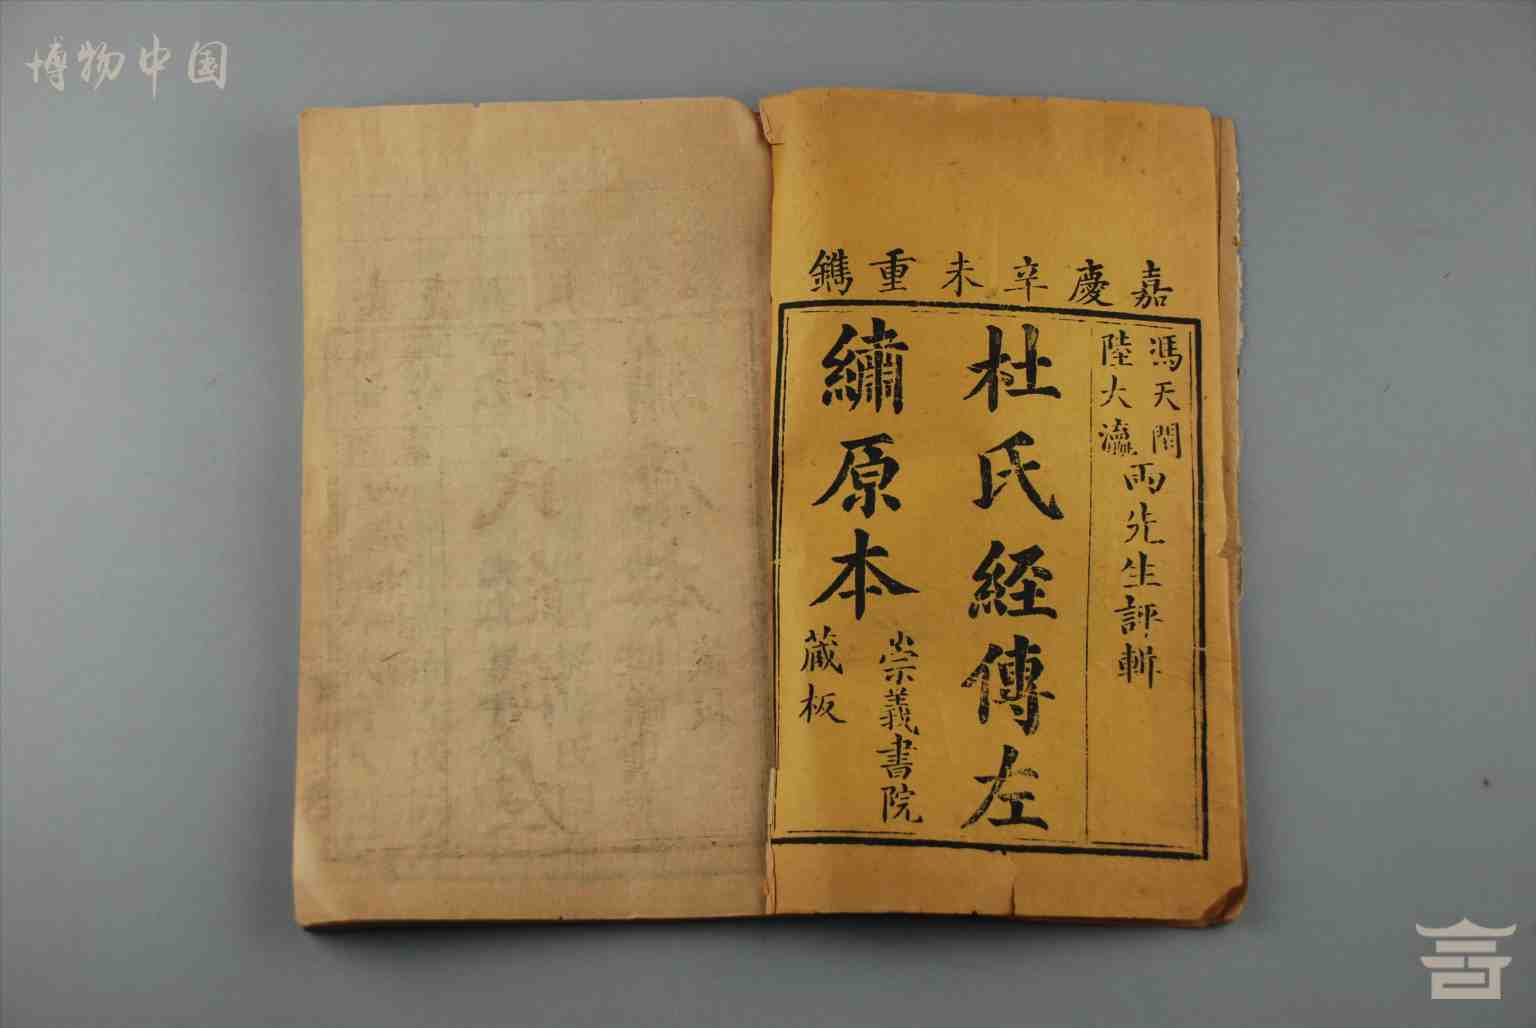 博物中国
嘉慶辛未重鐫
馮天閑
陸大瀛
兩先生評輯
杜氏經傳左
繡原本
崇義書院
藏板